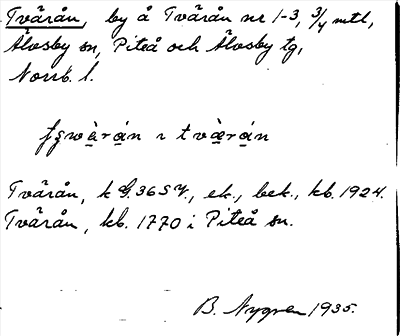 Tvärån, by å Tvärån nr 1-3, 3/4 mtl,
Älvsby sn, Piteå och Älvsby tg,
Norrb. l.
Tvärån, k G. 36 SV., ek., bek., kb. 1924.
Tvärån, kb. 1770 i Piteå sn.
B. Nygren 1935.